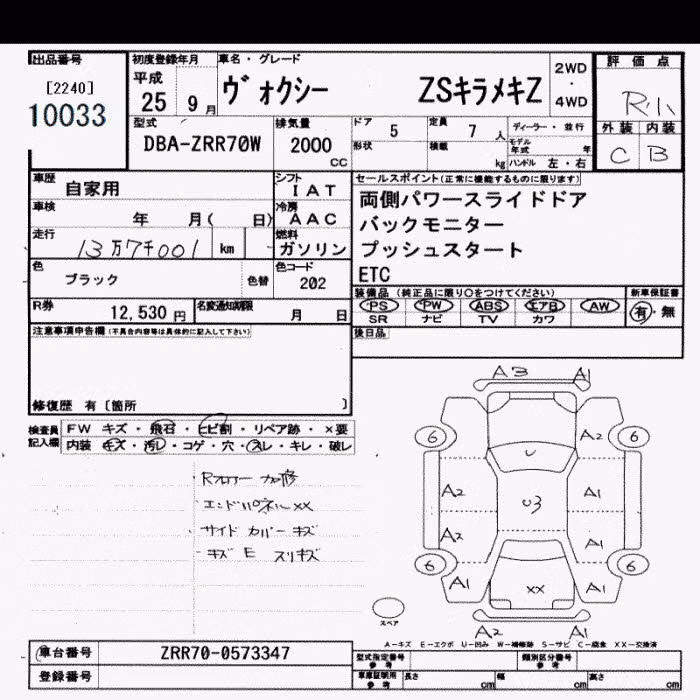 出品番号
[2240]
10033
初度登録年月
平成
25 9月
車名・グレード
ヴォクシー ZSキラメキZ
2WD
・
4WD
評価点
R小
外装 内装
C B
型式
DBA-ZRR70W
排気量
2000
CC
ドア 5
定員 7 人
ディーラー・並行
形状
積載 kg
モデル年式 年
ハンドル 左・右
車歴 自家用
シフト
IAT
車検 年 月( 日)
冷房
AAC
走行 13万7千001 km
燃料
ガソリン
セールスポイント(正常に機能するものに限ります)
両側パワースライドドア
バックモニター
プッシュスタート
ETC
色 ブラック 色替
色コード
202
R券 12,530 円
名変通知期限 月 日
装備品 (純正品に限り○をつけてください)
PS PW ABS エアB AW
SR ナビ TV カワ
新車保証書
有・無
注意事項申告欄(不具合内容等は具体的に記入して下さい)
後日品
修復歴 有〔箇所 〕
検査員記入欄
FW キズ・飛石・ヒビ割・リペア跡・×要
内装 キズ・汚レ・コゲ・穴・スレ・キレ・破レ
Rフロアー 加修
エンドパネル××
サイド カバー キズ
キズ E スリキズ
A3 A1
6 A2 6
U
A2 U3 A1
A2 A1
6 6
A1 XX A1
A2 A1
スペア
A-キズ E-エクボ U-凹み W-補修跡 S-サビ C-腐食 XX-交換済
車台番号 ZRR70-0573347
登録番号
型式指定番号
参考
類別区分番号
参考
車庫証明用
参考
長さ cm 幅 cm 高さ cm